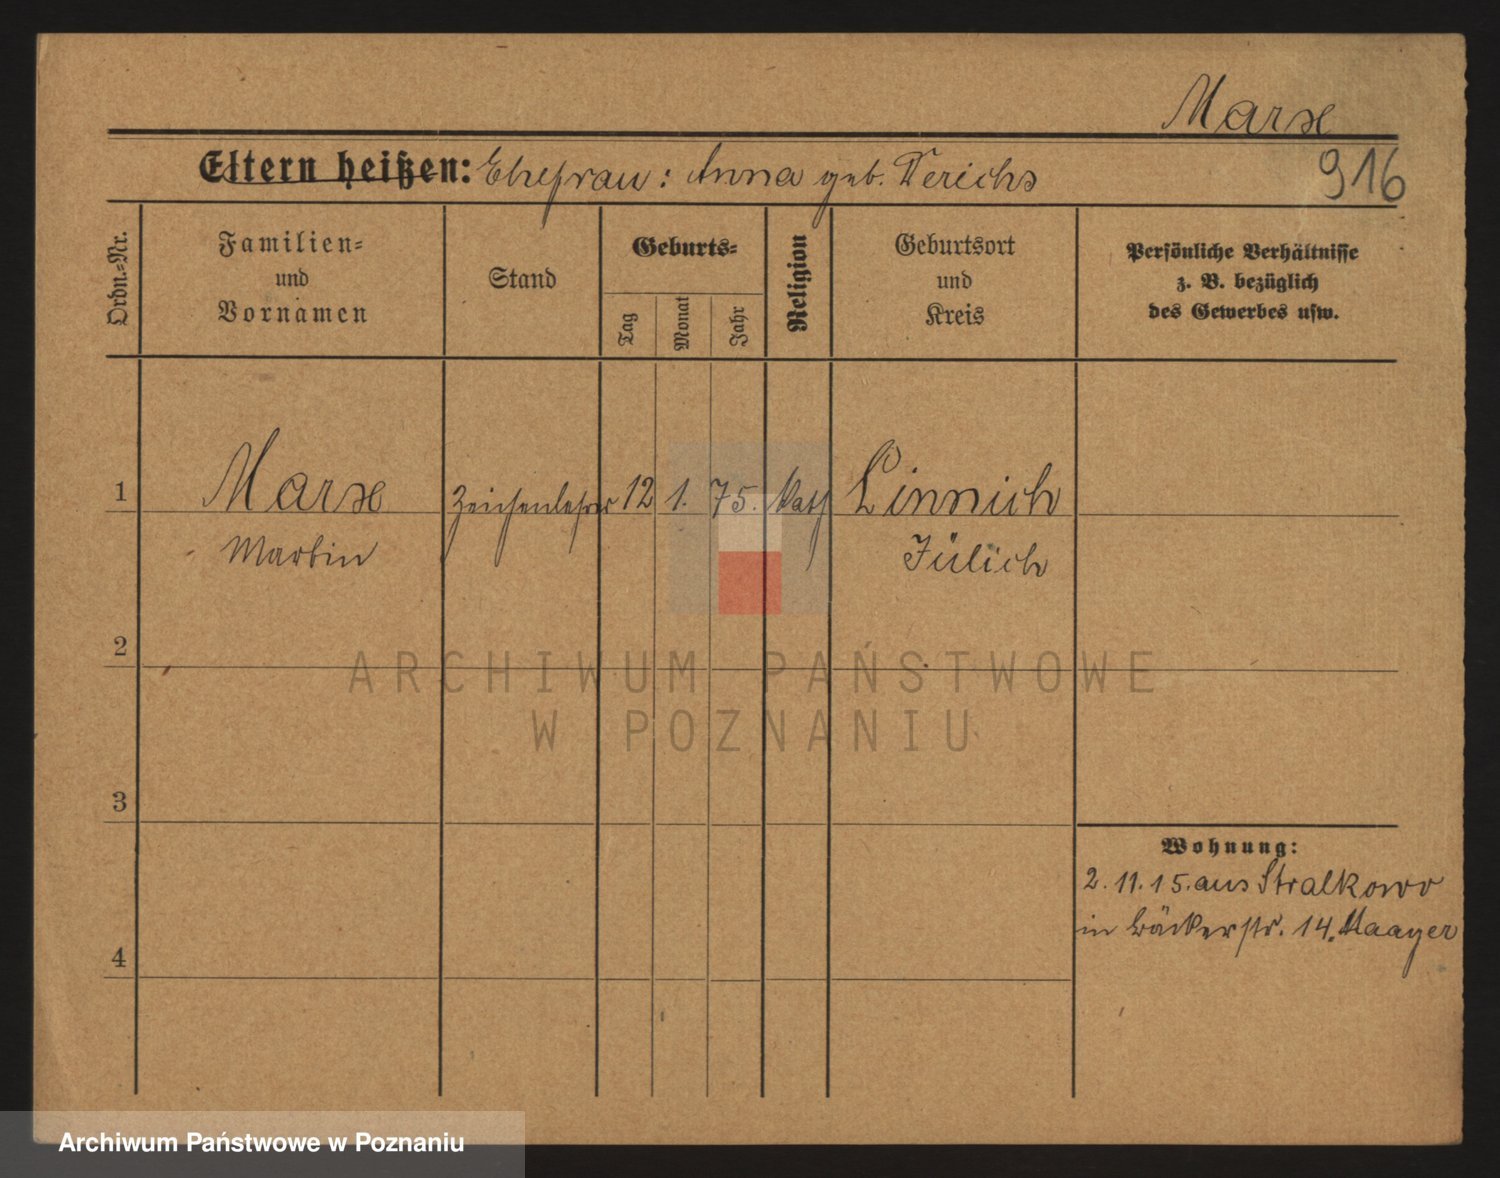 Marx
Eltern heißen: Ehefrau: Anna geb. Derichs
916
Ordn.-Nr.
Familien-
und
Vornamen
Stand
Geburts-
Tag
Monat
Jahr
Religion
Geburtsort
und
Kreis
Persönliche Verhältnisse
z. B. bezüglich
des Gewerbes usw.
1 Marx Zeichenlehrer 12 1. 75. kath Linnich
Martin Jülich
2
ARCHIWUM PAŃSTWOWE
W POZNANIU
3
Wohnung:
2. 11. 15. aus Stralkowo
in Bäckerstr. 14.
4
Archiwum Państwowe w Poznaniu